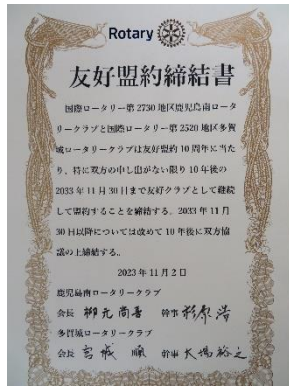 Rotary
友好盟約締結書
国際ロータリー第2730地区鹿児島南ロータ
リークラブと国際ロータリー第2520地区多賀
城ロータリークラブは友好盟約10周年に当た
り、特に双方の申し出がない限り10年後の
2033年11月30日まで友好クラブとして継続
して盟約することを締結する。2033年11月
30日以降については改めて10年後に双方協
議の上締結する。
2023年11月2日
鹿児島南ロータリークラブ
会長 柳元尚喜 幹事 杉原浩
多賀城ロータリークラブ
会長 宮城順 幹事 大場裕之